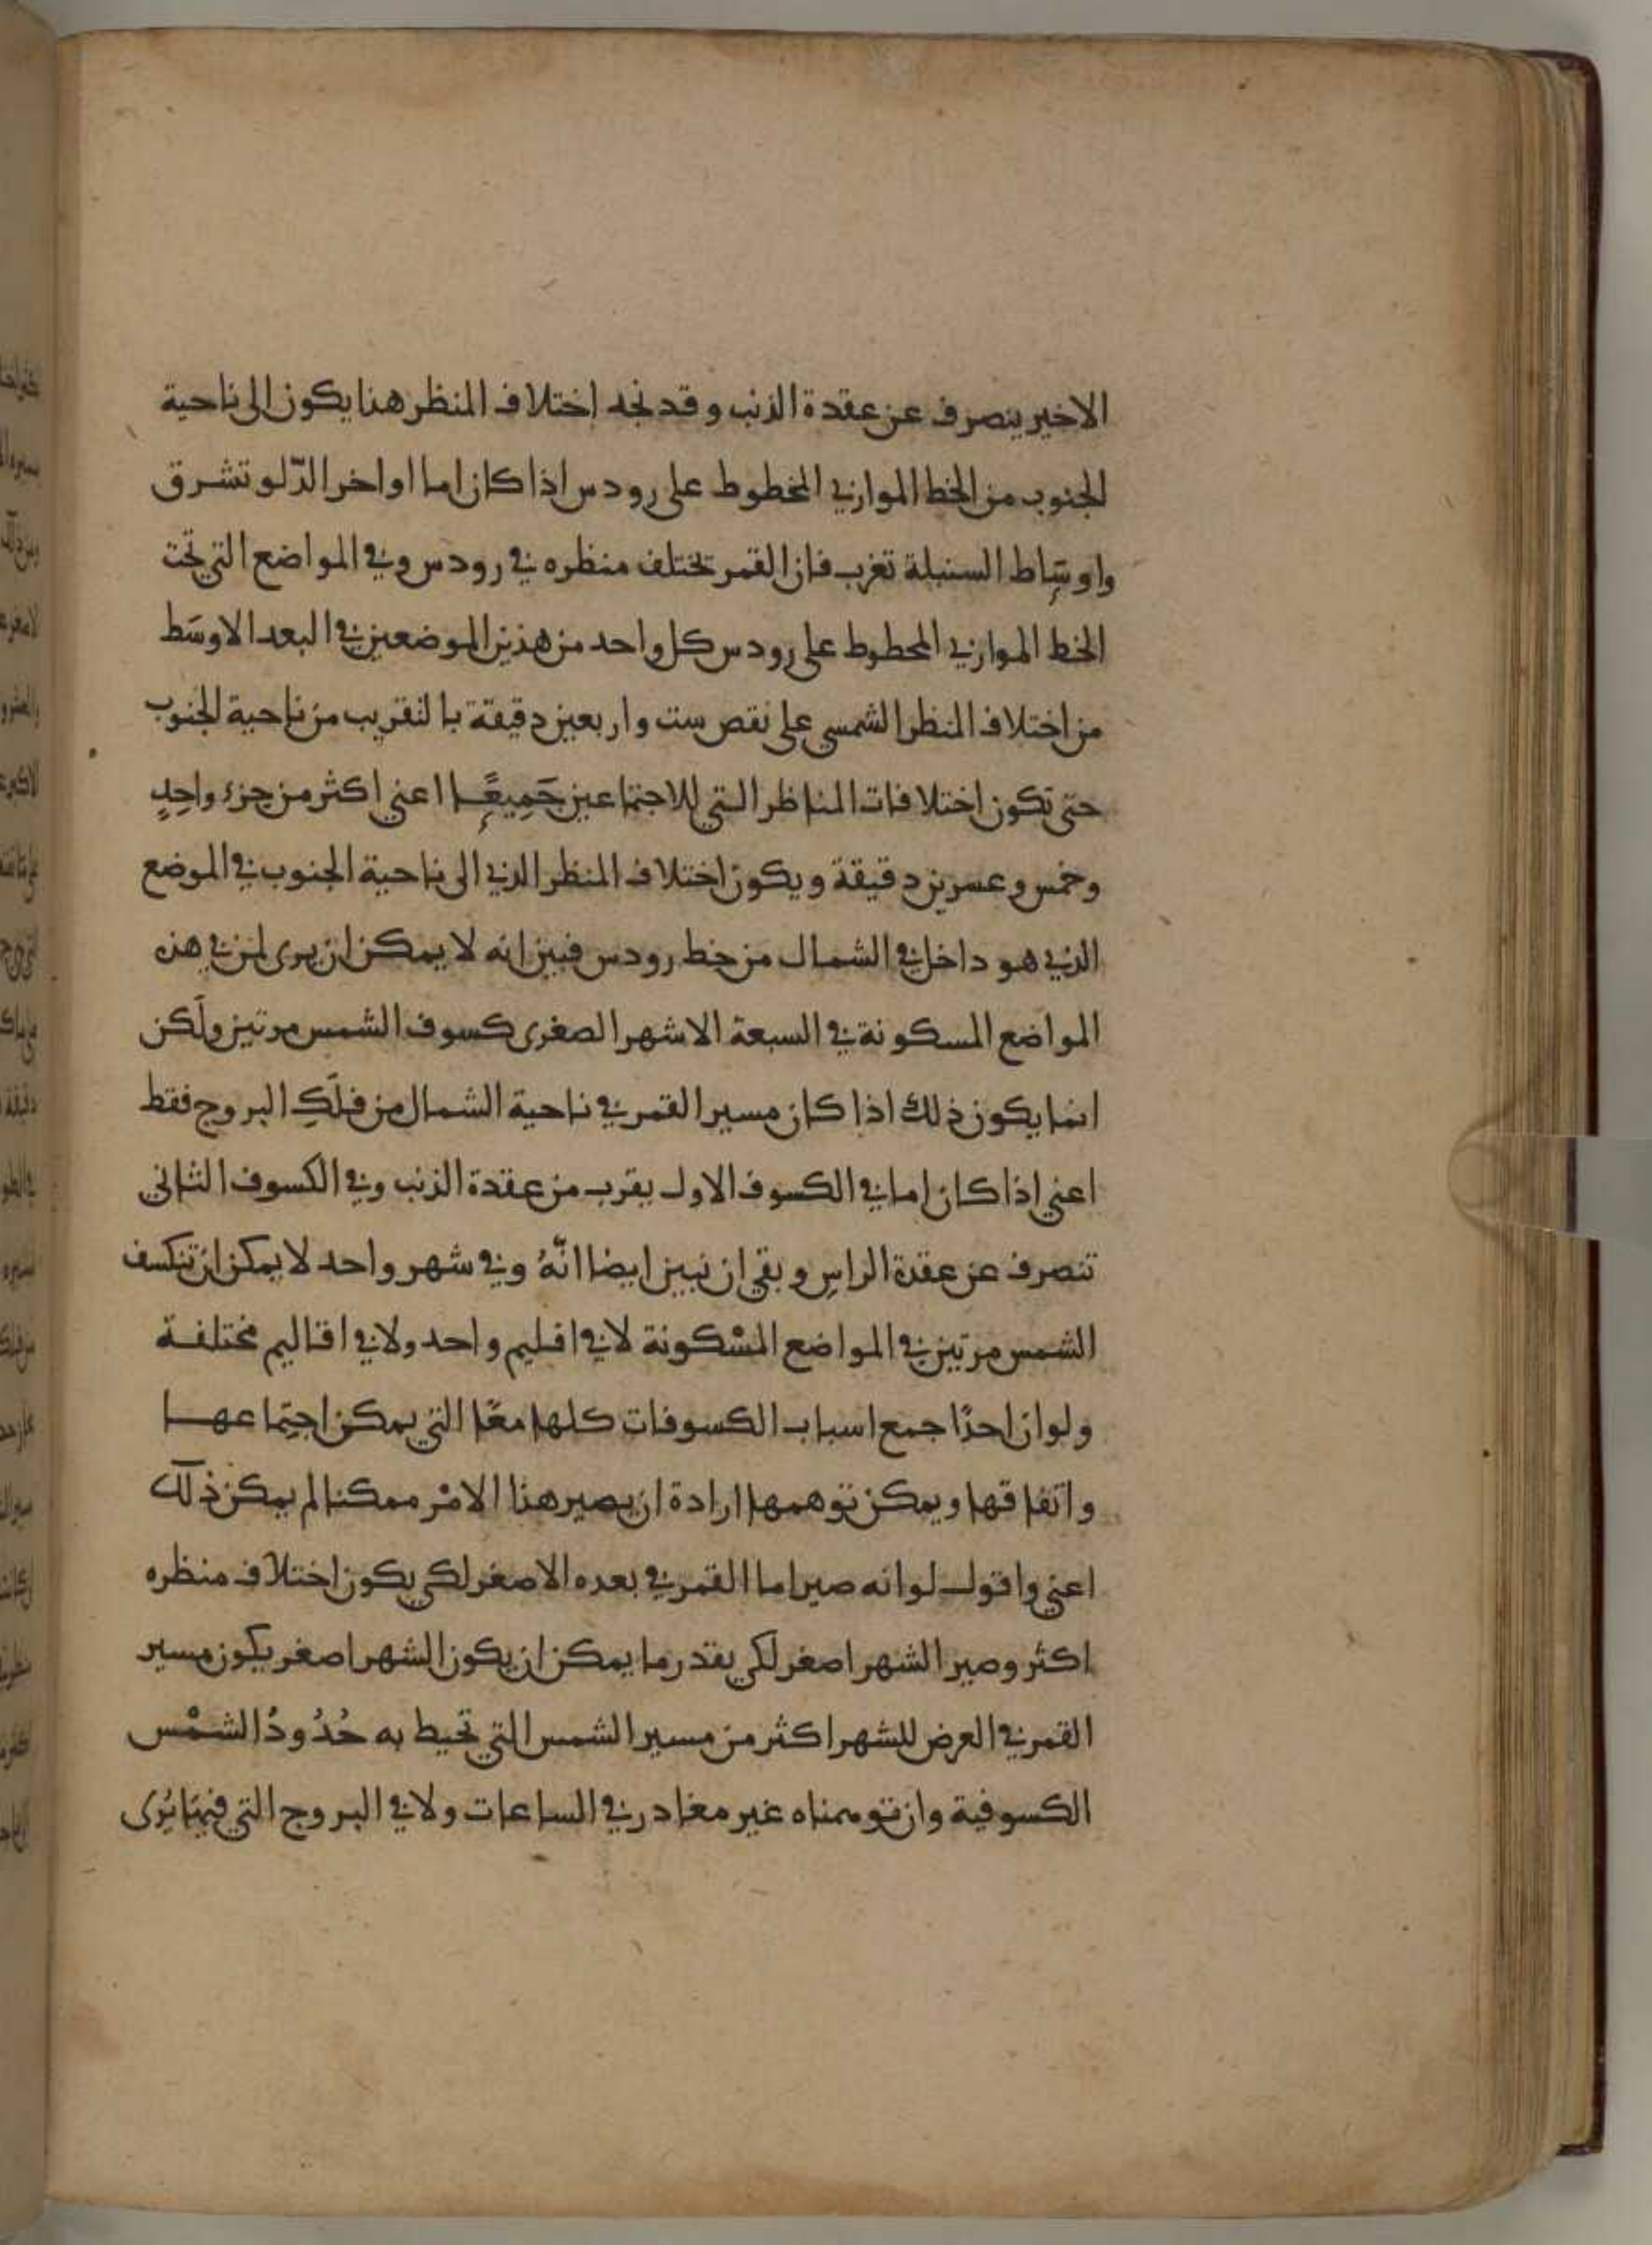 الاخير ينصرف عن عقدة الذنب وقد نجد اختلاف المنظر هنا يكون الى ناحية
الجنوب من الخط الموازي المخطوط على رودس اذا كان اما اواخر الدّلو تشرق
واوسَاط السنبلة تغرب فان القمر تختلف منظره في رودس وفي المواضع التي تحت
الخط الموازي المخطوط على رودس كل واحد من هذين الموضعين في البعد الاوسَط
من اختلاف المنظر الشمسي على نقص ست واربعين دقيقة بالتقريب من ناحية الجنوب
حتى تكون اختلافات المناظر التي للاجتماعين جَمِيعًا اعني اكثر من جزء واحِدٍ
وخمس وعسرين دقيقة ويكون اختلاف المنظر الذي الى ناحية الجنوب في الموضع
الذي هو داخل في الشمال من خط رودس فبين انه لا يمكن ان يرى لمن في هذه
المواضع المسكونة في السبعة الاشهر الصغرى كسوف الشمس مرتين ولَكن
انما يكون ذلك اذا كان مسير القمر في ناحية الشمال من فلَكِ البروج فقط
اعني اذا كان اما في الكسوف الاول يقرب من عقدة الذنب وفي الكسوف الثاني
تنصرف عن عقدة الراسِ وبقي ان نبين ايضا انّهُ وفي شهر واحد لا يمكن ان تنكسف
الشمس مرتين في المواضع المسْكونة لا في اقليم واحد ولا في اقاليم مختلفة
ولو ان احدًا جمع اسباب الكسوفات كلها معًا التي يمكن اجتِماعها
واتفاقها ويمكن توهمها ارادة ان يصير هذا الامْر ممكنا لم يمكن ذلك
اعني واقول لو انه صير اما القمر في بعده الاصغر لكي يكون اختلاف منظره
اكثر وصير الشهر اصغر لكي بقدر ما يمكن ان يكون الشهر اصغر يكون مسير
القمر في العرض للشهر اكثر من مسير الشمس التي تحيط به حُدُودُ الشمْس
الكسوفية وان توهمناه غير مغادر في الساعات ولا في البروج التي فيهَا يُرى